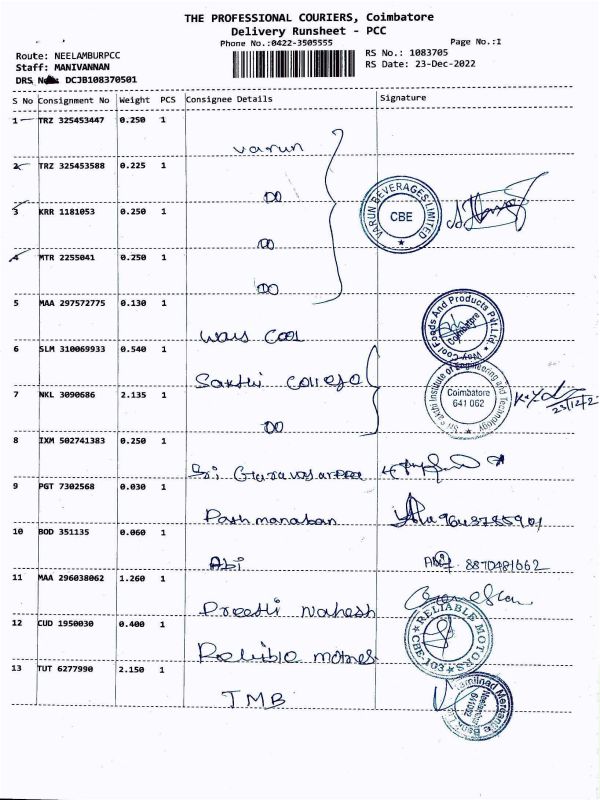 THE PROFESSIONAL COURIERS, Coimbatore
Delivery Runsheet - PCC
Phone No.:0422-3505555
Page No.:1
Route: NEELAMBURPCC
RS No.: 1083705
Staff: MANIVANNAN
RS Date: 23-Dec-2022
DRS No. DCJB108370501
S No Consignment No Weight PCS Consignee Details Signature
1 TRZ 325453447 0.250 1
Varun
2 TRZ 325453588 0.225 1
DO
VARUN BEVERAGES LIMITED
CBE
3 KRR 1181053 0.250 1
DO
4 MTR 2255041 0.250 1
DO
5 MAA 297572775 0.130 1
Ways Cool
Way Cool Foods And Products Pvt.Ltd.
Coimbatore
6 SLM 310069933 0.540 1
Sakthi College
Sri Sakthi Institute of Engineering and Technology
Coimbatore
641 062
7 NKL 3090686 2.135 1
DO
23/12/2
8 IXM 502741383 0.250 1
Sri
9 PGT 7302568 0.030 1
Pathmanaban
10 BOD 351135 0.060 1
Abi
8870481662
11 MAA 296038062 1.260 1
Preethi Mahesh
12 CUD 1950030 0.400 1
Relible motors
RELIABLE MOTORS
CBE-103
13 TUT 6277990 2.150 1
TMB
Tamilnad Mercantile Bank